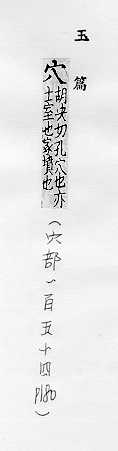 玉篇
穴
胡決切孔穴也亦
土室也冢壙也
(穴部一百五十四 P180)